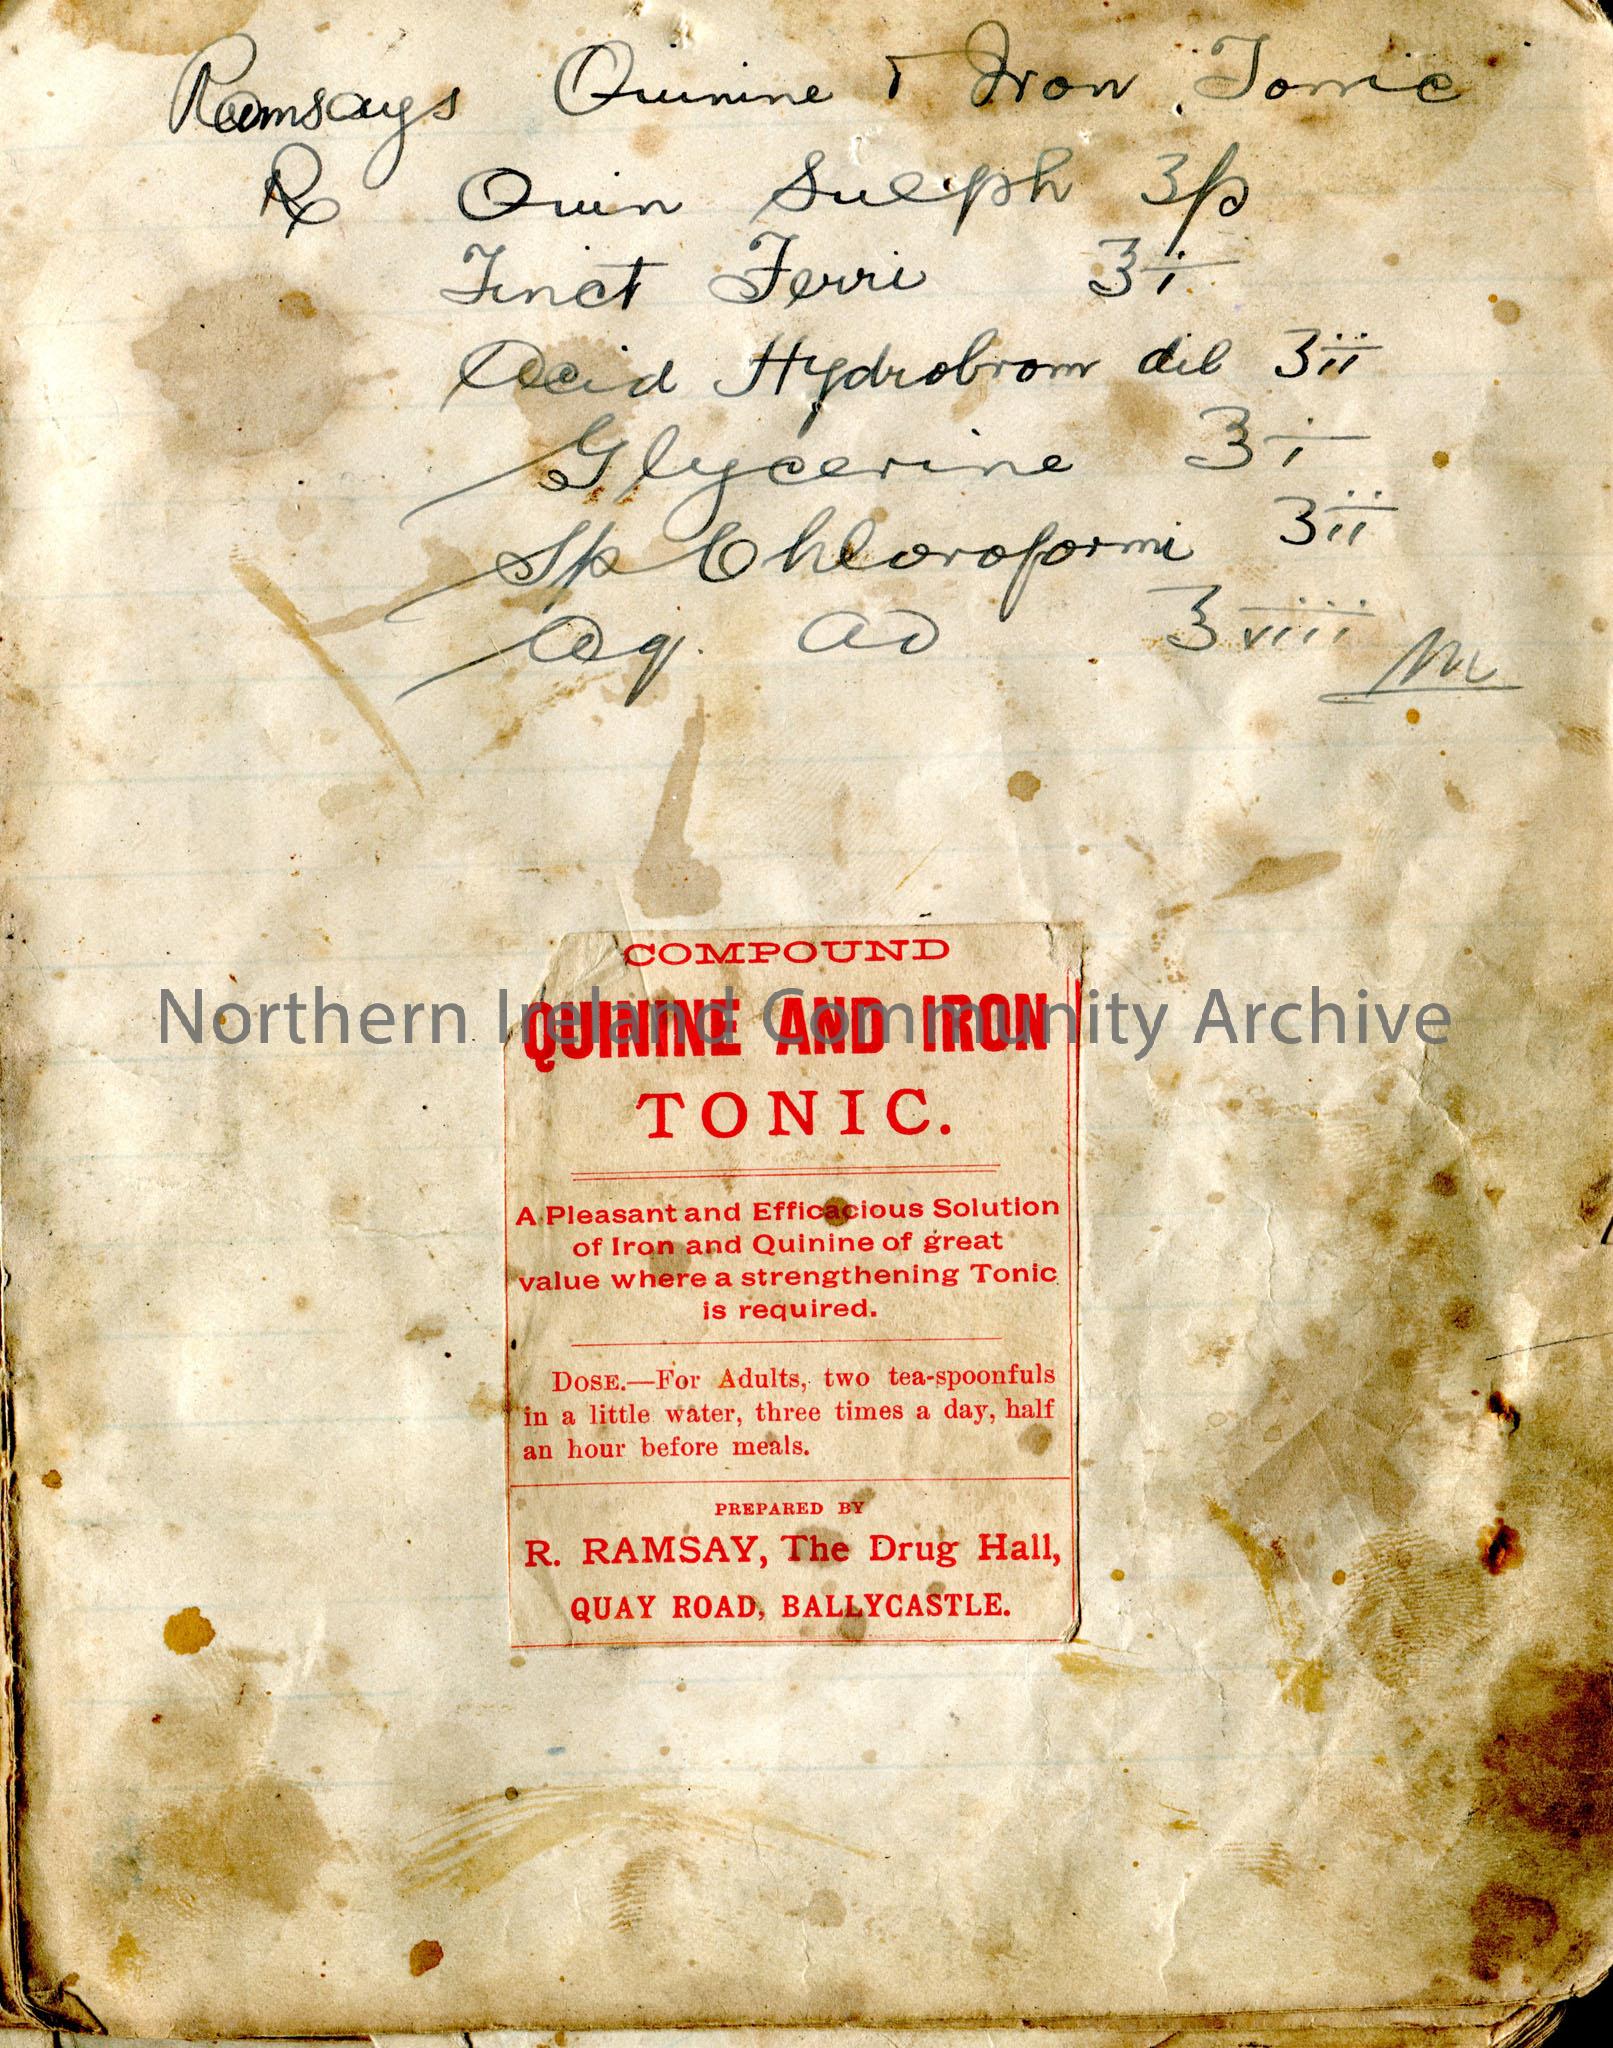 Ramsays Quinine & Iron Tonic
℞ Quin Sulph ʒß
Tinct Ferri ℥i
Acid Hydrobrom dil ʒii
Glycerine ℥i
Sp Chloroformi ʒii
Aq. ad ℥viii M
COMPOUND
QUININE AND IRON
TONIC.
A Pleasant and Efficacious Solution
of Iron and Quinine of great
value where a strengthening Tonic
is required.
DOSE.—For Adults, two tea-spoonfuls
in a little water, three times a day, half
an hour before meals.
PREPARED BY
R. RAMSAY, The Drug Hall,
QUAY ROAD, BALLYCASTLE.
Northern Ireland Community Archive